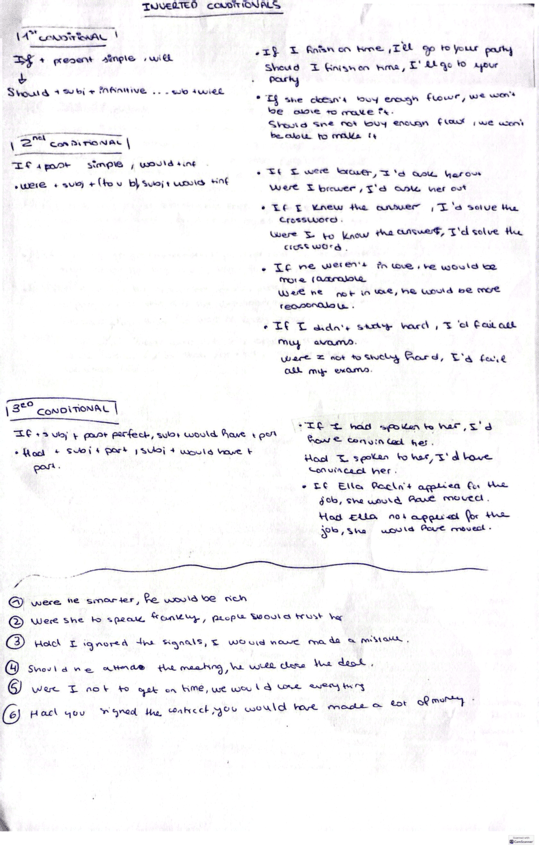 INVERTED CONDITIONALS
1st CONDITIONAL
If + present simple, will
↓
Should + subj + infinitive ... sub + will
• If I finish on time, I'll go to your party
Should I finish on time, I'll go to your
party
• If she doesn't buy enough flour, we won't
be able to make it.
Should she not buy enough flour, we won't
be able to make it
2nd CONDITIONAL
If + past simple, would + inf
• were + subj + (to v b) subj + would + inf
• If I were braver, I'd ask her out
Were I braver, I'd ask her out
• If I knew the answer, I'd solve the
crossword.
Were I to know the answer, I'd solve the
crossword.
• If he weren't in love, he would be
more reasonable
Were he not in love, he would be more
reasonable.
• If I didn't study hard, I'd fail all
my exams.
Were I not to study hard, I'd fail
all my exams.
3rd CONDITIONAL
If + subj + past perfect, subj would have + part
• Had + subj + part, subj + would have +
part.
• If I had spoken to her, I'd
have convinced her.
Had I spoken to her, I'd have
convinced her.
• If Ella hadn't applied for the
job, she would have moved.
Had Ella not applied for the
job, she would have moved.
① Were he smarter, he would be rich
② Were she to speak frankly, people would trust her
③ Had I ignored the signals, I would have made a mistake.
④ Should he attend the meeting, he will close the deal.
⑤ Were I not to get on time, we would lose everything
⑥ Had you signed the contract, you would have made a lot of money.
CamScanner